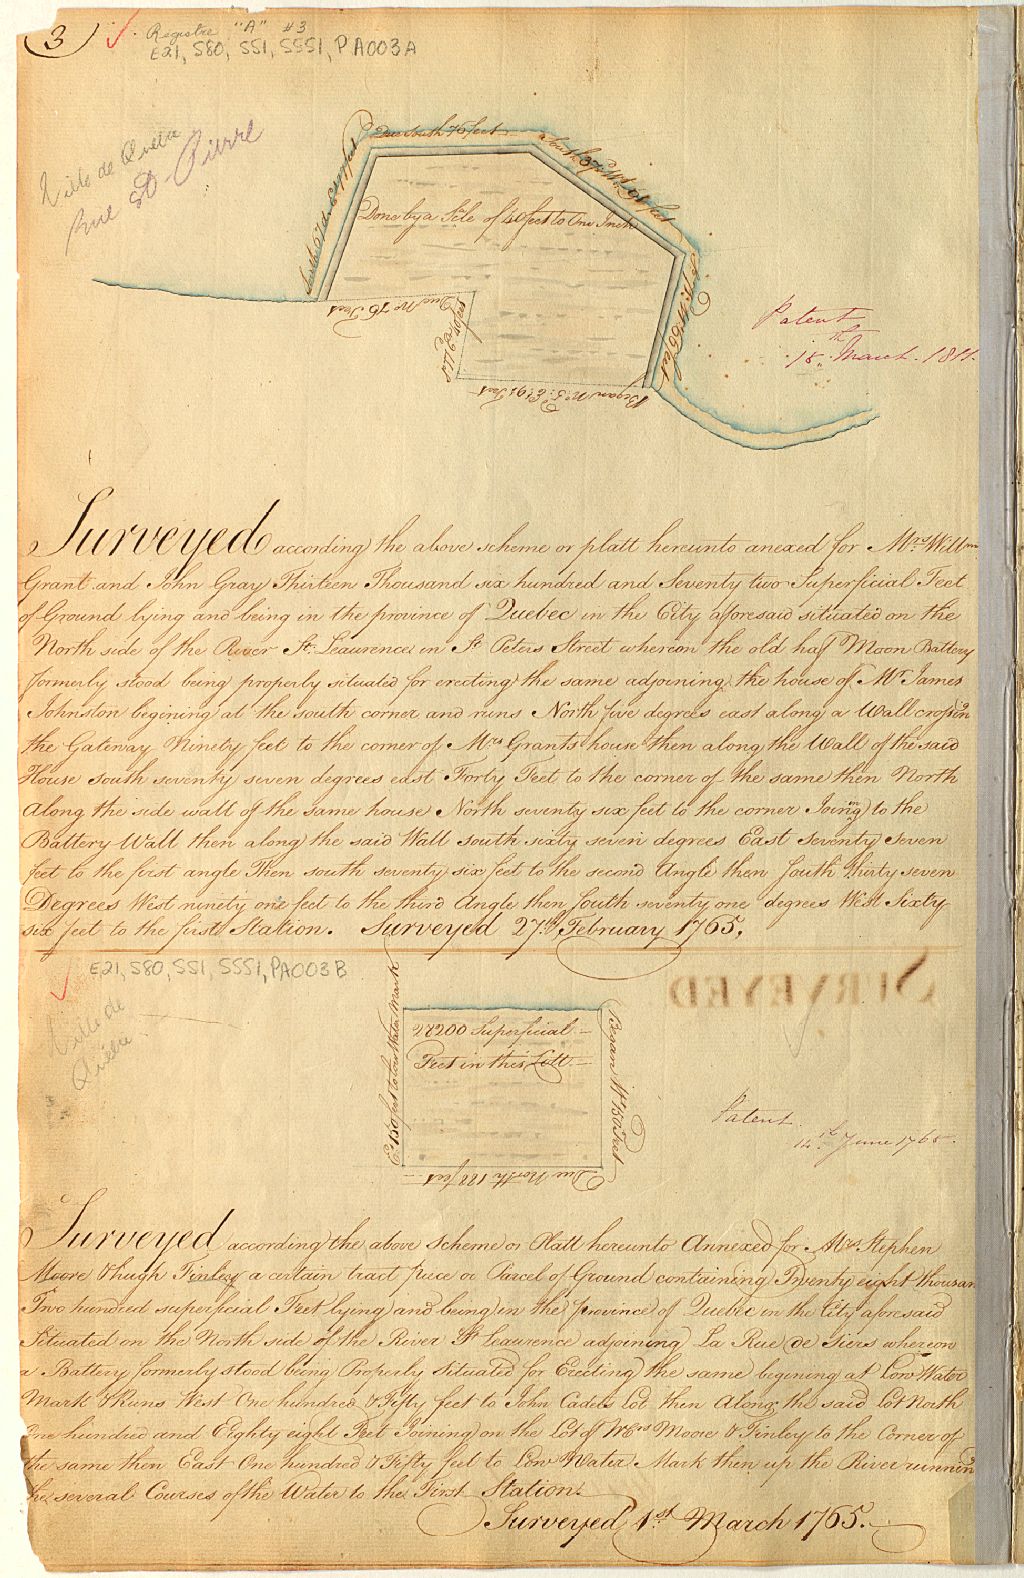 3
Registre "A" #3
E21, S80, SS1, SSS1, PA003A
Ville de Québec
Rue St Pierre
South 67d. E 77 feet
Due South 76 feet
South 37d. Wt. 91 feet
Wt. 66 feet
Done by a Scle of 40 feet to One Inch
Due No. 76 Feet
40 feet
Began No. 5d. E. 91 Feet
Patent
15th March 1811.
Surveyed according the above scheme or platt hereunto anexed for Mrs. Willm
Grant and John Gray Thirteen Thousand six hundred and Seventy two Superficial Feet
of Ground lying and being in the province of Quebec in the City aforesaid situated on the
North side of the River St. Leaurence in St. Peters Street whereon the old half Moon Battery
formerly stood being properly situated for erecting the same adjoining the house of Mr. James
Johnston begining at the south corner and runs North five degrees east along a Wall crossin
the Gateway Ninety feet to the corner of Mrs Grants house then along the Wall of the said
House south seventy seven degrees east Forty Feet to the corner of the same then North
along the side wall of the same house North seventy six feet to the corner Joining to the
Battery Wall then along the said Wall south sixty seven degrees East seventy seven
feet to the first angle Then south seventy six feet to the second Angle then South thirty seven
Degrees West ninety one feet to the third Angle then South seventy one degrees West Sixty
six feet to the first Station. Surveyed 27th. February 1765.
E21, S80, SS1, SSS1, PA003B
Ville de
Québec
SURVEYED
E. 150 feet to Low Water Mark
28200 Superficial
Feet in this Lott
Began Wt. 150 Feet
Due North 188 feet
Patent
14th June 1765.
Surveyed according the above Scheme or Platt hereunto Annexed for Mrs Stephen
Moore & hugh Finley a certain tract piece or Parcel of Ground containing Twenty eight thousan
Two hundred superficial Feet lying and being in the province of Quebec in the City aforesaid
Situated on the North side of the River St Leaurence adjoining La Rue de Siers whereon
a Battery formerly stood being Properly Situated for Erecting the same begining at Low Water
Mark & Runs West One hundred & Fifty feet to John Cadets Lot then Along the said Lot North
One hundred and Eighty eight Feet Joining on the Lot of Messrs Moore & Finley to the Corner of
the same then East One hundred & Fifty feet to Low Water Mark then up the River runnin
the several Courses of the Water to the First Station.
Surveyed 1st March 1765.